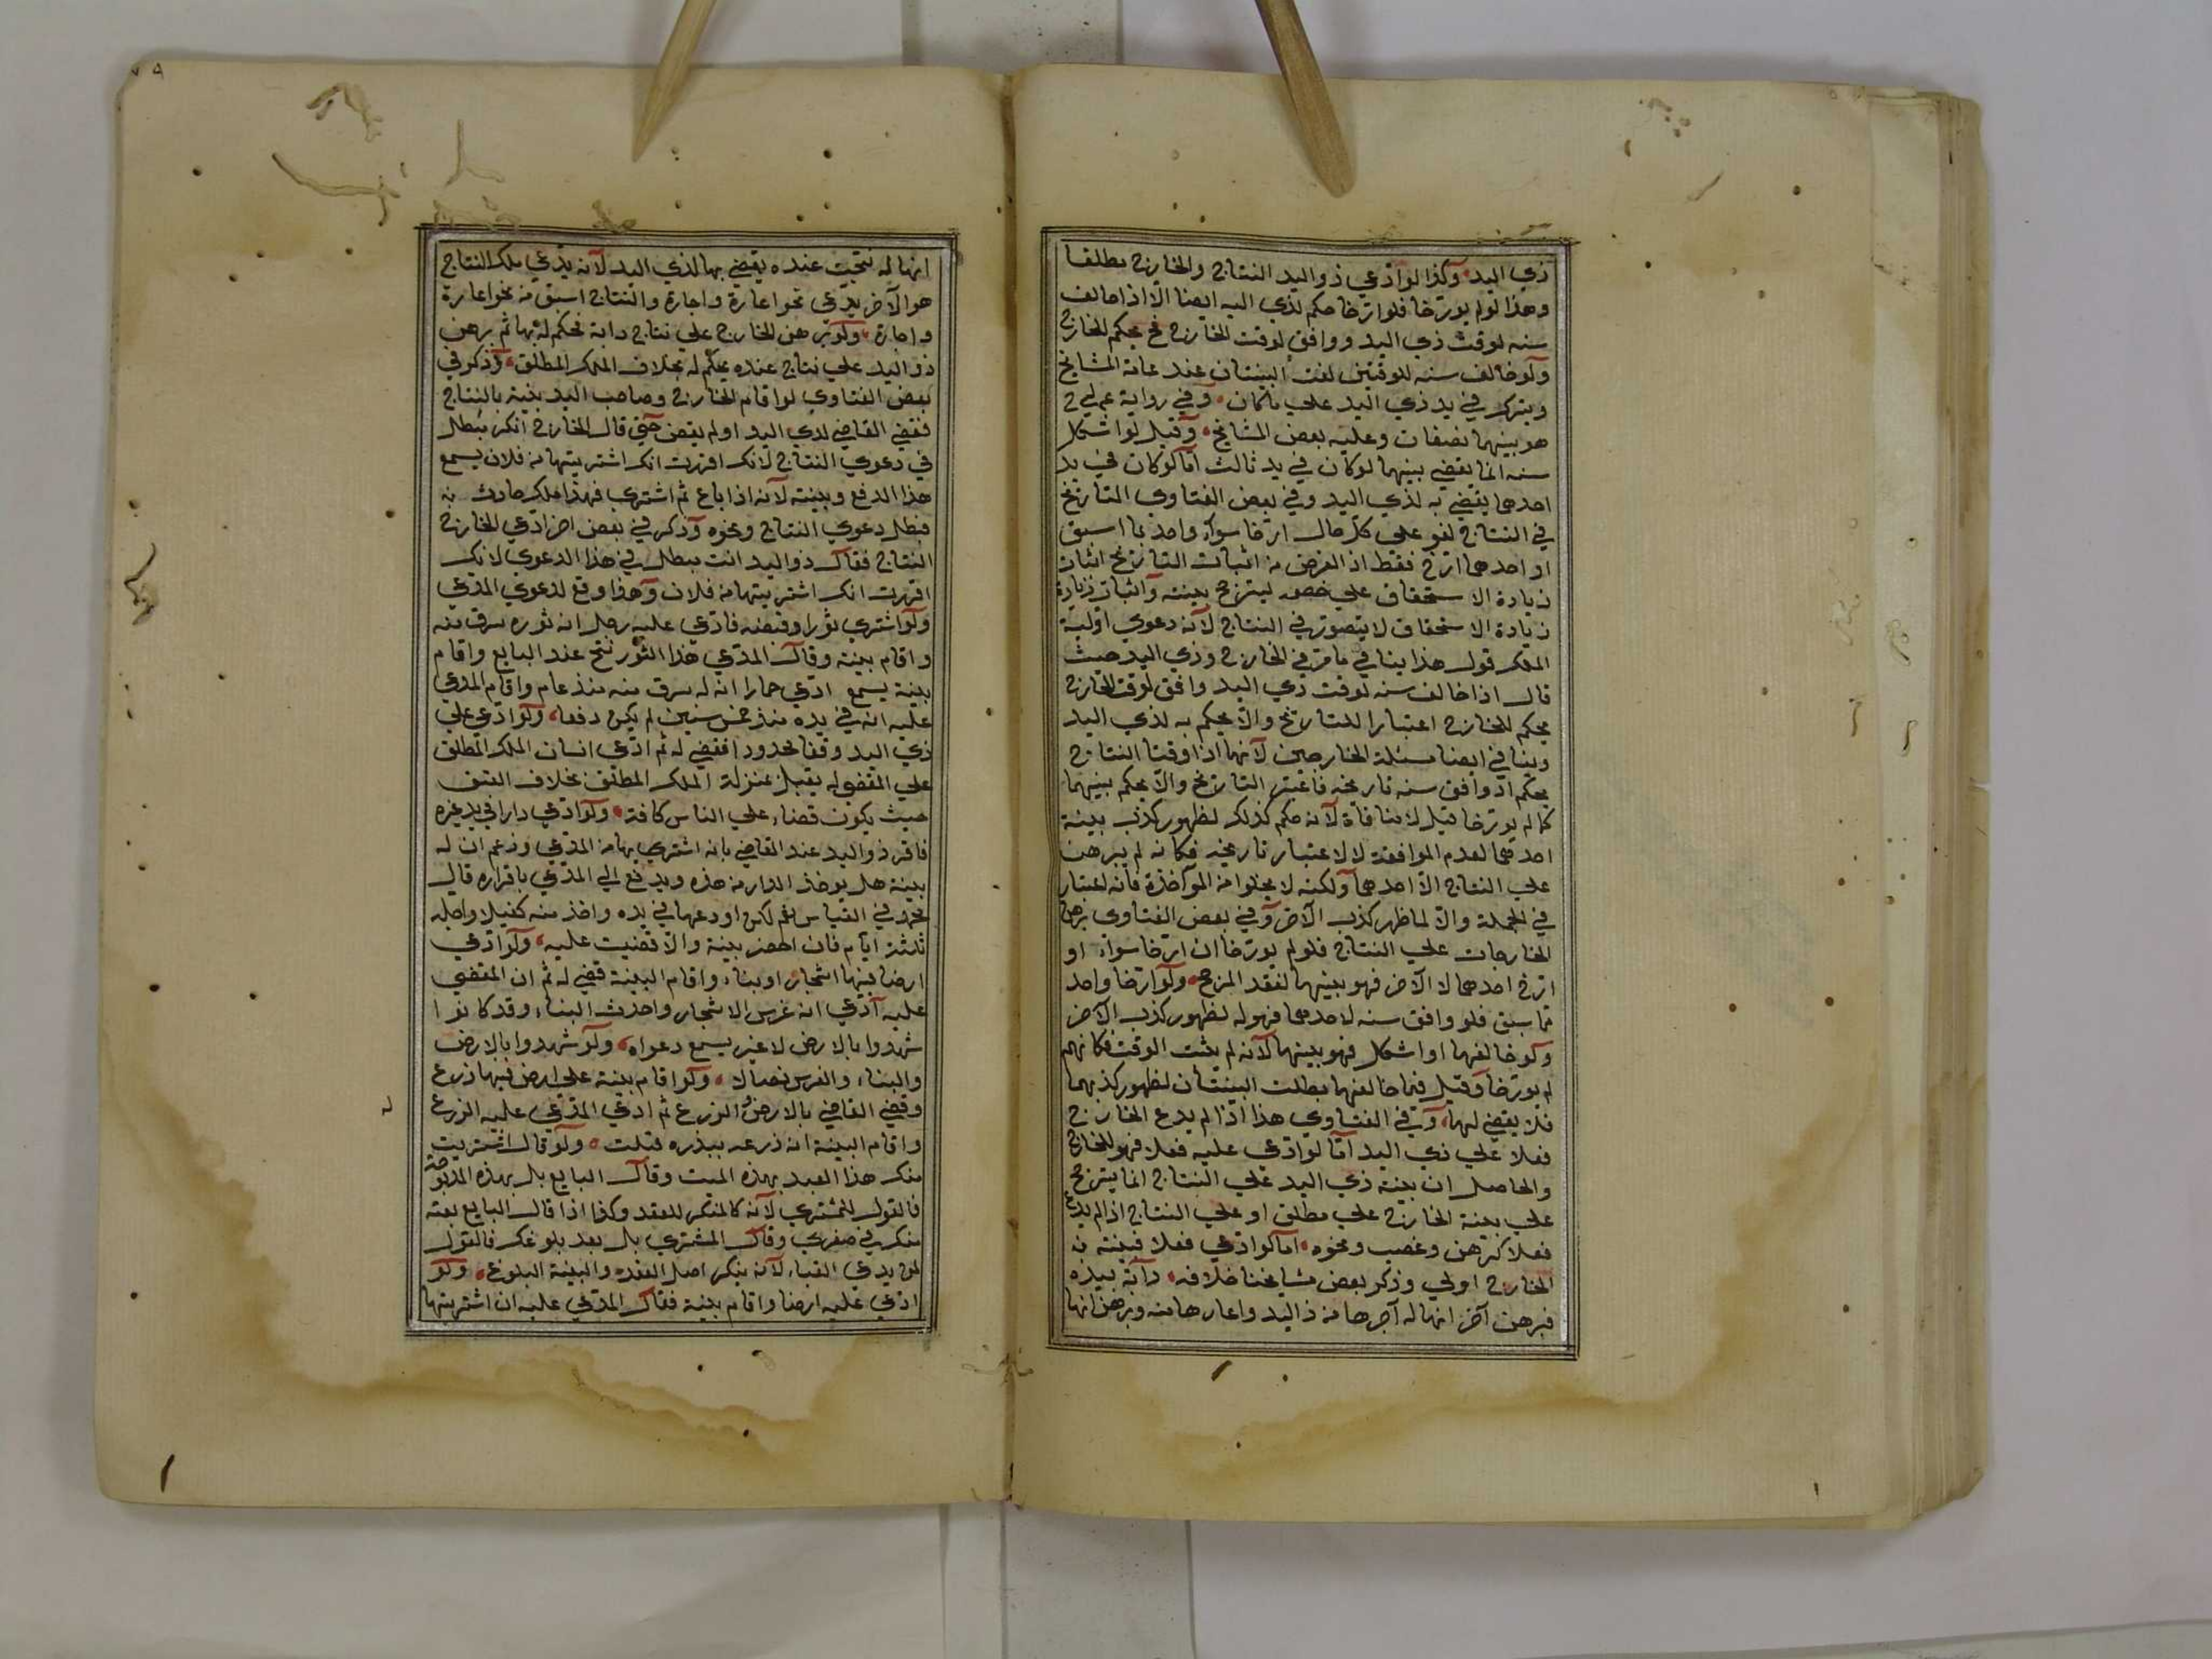 ذي اليد وكذا لو ادعي ذو اليد النتاج والخارج مطلقا
وهذا لو لم يورخا فلو ارخا حكم لذي اليد ايضا الا اذا خالف
سنه لوقت ذي اليد ووافق لوقت الخارج فح يحكم للخارج
ولو خالف سنه للوقتين لغت البينتان عند عامة المشايخ
ويترك في يد ذي اليد علي ما كان وفي رواية
هو بينهما نصفان وعليه بعض المشايخ وقيل لو اشكل
سنه انما يقضي بينهما لو كان في يد ثالث اما لو كان في يد
احدهما يقضي به لذي اليد وفي بعض الفتاوي التاريخ
في النتاج لغو علي كل حال ارخا سواء واحدهما اسبق
او احدهما ارخ فقط اذ الغرض من اثبات التاريخ اثبات
زيادة الاستحقاق علي خصمه ليترجح بينته واثبات زيادة
زيادة الاستحقاق لا يتصور في النتاج لانه دعوي اولية
الملك قوله هذا ينافي ما مر في الخارج وذي اليد حيث
قال اذا خالف سنه لوقت ذي اليد وافق لوقت الخارج
يحكم للخارج اعتبارا للتاريخ والا يحكم به لذي اليد
وينافي ايضا مسئلة الخارجين لانهما اذا وقتا النتاج
يحكم اذ وافق سنه تاريخه فاعتبر التاريخ والا يحكم بينهما
كما لم يورخا قيل لا منافاة لانه حكم كذلك لظهور كذب بينة
احدهما لعدم الموافقة لا لاعتبار تاريخه فكانه لم يبرهن
علي النتاج الا احدهما ولكنه لا يخلوا من المواخذة فانه اعتبار
في الجملة والا لما ظهر كذب الاخر وفي بعض الفتاوي برهن
الخارجات علي النتاج فلو لم يورخا ان ارخا سواء او
ارخ احدهما لا الاخر فهو بينهما لفقد المرجح ولو ارخا واحد
ما سبق فلو وافق سنه لاحدهما فهو له لظهور كذب الاخر
ولو خالفهما او اشكل فهو بينهما لانه لم يثبت الوقت فكانهم
لم يورخا وقيل فيما خالفهما بطلت البينتان لظهور كذبهما
فلا يقضي لهما وفي الفتاوي هذا اذا لم يدع الخارج
فعلا علي ذي اليد اما لو ادعي عليه فعلا فهو للخارج
والحاصل ان بينة ذي اليد علي النتاج انما يترجح
علي بينة الخارج علي مطلق او علي النتاج اذا لم يدع
فعلا كرهن وغصب ونحوه اما لو ادعي فعلا فبينته
الخارج اولي وذكر بعض مشايخنا خلافه دابة بيده
فبرهن آخر انها له آجرها من ذاليد واعارها منه وبرهن انها
انها له نتجت عنده يقضي بها لذي اليد لانه يدعي ملك النتاج
هو الاخر يدعي نحو اعارة واجارة والنتاج اسبق من نحو اعارة
واجارة ولو برهن الخارج علي نتاج دابة فحكم له بها ثم برهن
ذو اليد علي نتاج عنده يحكم له بخلاف الملك المطلق وذكر في
بعض الفتاوي لو اقام الخارج وصاحب اليد بينة بالنتاج
فقضي القاضي لذي اليد او لم يقض حتي قال الخارج انك مبطل
في دعوي النتاج لانك اقررت انك اشتريتها من فلان يسمع
هذا الدفع وبينته لانه اذا باع ثم اشتري فهذا ملك حادث
فبطل دعوي النتاج ونحوه وذكر في بعض اخر ادعي الخارج
النتاج فقال ذو اليد انت مبطل في هذا الدعوي لانك
اقررت انك اشتريتها من فلان وهذا وقع لدعوي المدعي
ولو اشتري ثورا وقبضه فادعي عليه رجل انه ثوره سرق منه
واقام بينة وقال المدعي هذا الثور نتج عند البايع واقام
بينة يسمع ادعي حمارا انه له سرق منه منذ عام واقام المدعي
عليه انه في يده منذ خمس سنين لم يكن دفعا ولو ادعي علي
ذي اليد وقفا لحدود فقضي له ثم ادعي انسان الملك المطلق
علي المقضي له يقبل بمنزلة الملك المطلق بخلاف العتق
حيث يكون قضاء علي الناس كافة ولو ادعي دارا في يد غيره
فاقر ذو اليد عند القاضي بانه اشتري بها من المدعي وزعم ان له
بينة هل يوخذ الدار من هذه ويدفع الي المدعي باقراره قال
محمد في القياس نعم لكن اودعها في يده واخذ منه كفيلا واجله
ثلثة ايام فان احضر بينة والا قضيت عليه ولو ادعي
ارضا فيها اشجار او بناء واقام البينة قضي له ثم ان المقضي
عليه ادعي انه غرس الاشجار واحدث البناء وقد كانوا
شهدوا بالارض لا غير يسمع دعواه ولو شهدوا بالارض
والبناء والغرس نصا لا ولو اقام بينة علي ارض فيها زرع
وقضي القاضي بالارض والزرع ثم ادعي المدعي عليه الزرع
واقام البينة انه زرعه ببذره قبلت ولو قال اشتريت
منك هذا العبد بهذه الميت وقال البايع بل بهذه المذبوحة
فالقول للمشتري لانه كالمنكر للعقد وكذا اذا قال البايع بعته
منك في صغري وقال المشتري بل بعد بلوغك فالقول
لمن يدعي الصباء لانه ينكر اصل العقد والبينة البلوغ ولو
ادعي عليه ارضا واقام بينة فقال المدعي عليه ان اشتريتها